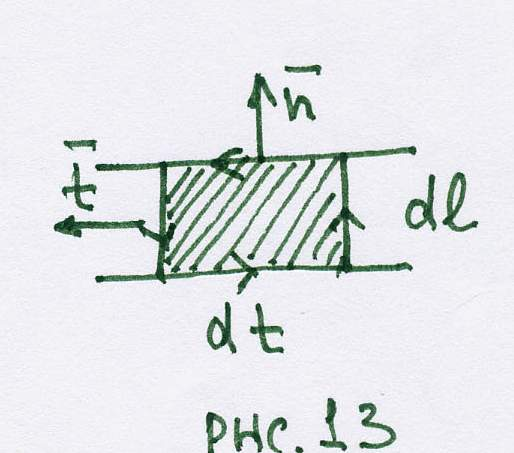 n̄
t̄
dl
dt
рис. 13